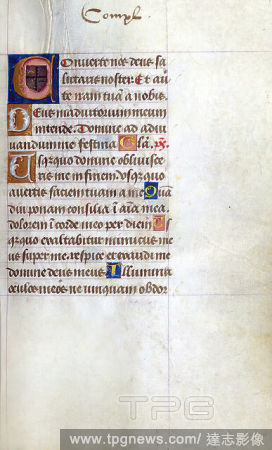 Compl.
Converte nos deus sa
lutaris noster. Et aver
te iram tuã a nobis.
Deus in adiutorium meum
intende. Domine ad adiu
vandum me festina. Gl̃a. pš.
Usquequo domine oblivisce
ris me in finem. usquequo
avertis faciem tuam a me. Quã
diu ponam consilia ĩ aĩa mea.
dolorem ĩ corde meo per diem. Us
q̃quo exaltabitur inimicus me
us super me. respice et exaudi me
domine deus meus. Illumina
oculos meos ne unquam obdor
TPG
www.tpgnews.com/達志影像